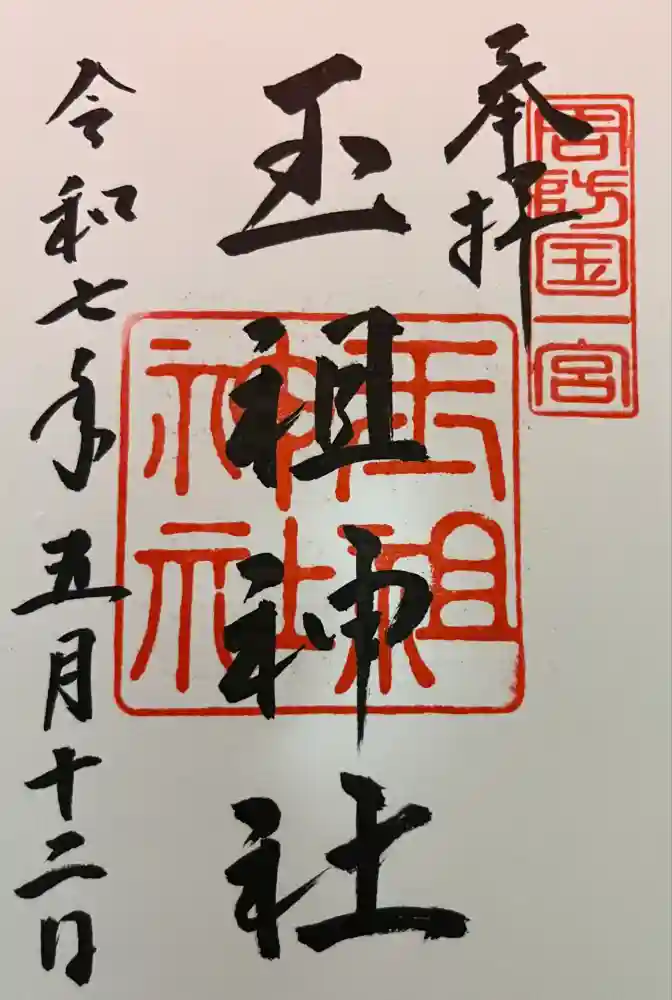 奉拝
周防国一宮
玉祖神社
玉祖
神社
令和七年五月十二日